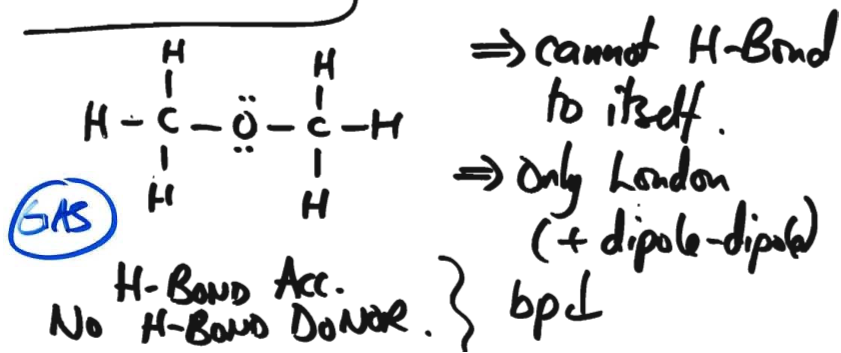 H H
H - C - Ö - C - H
H H
GAS
H-BOND ACC.
NO H-BOND DONOR.
⇒ cannot H-Bond
to itself.
⇒ Only London
(+ dipole-dipole)
bp↓